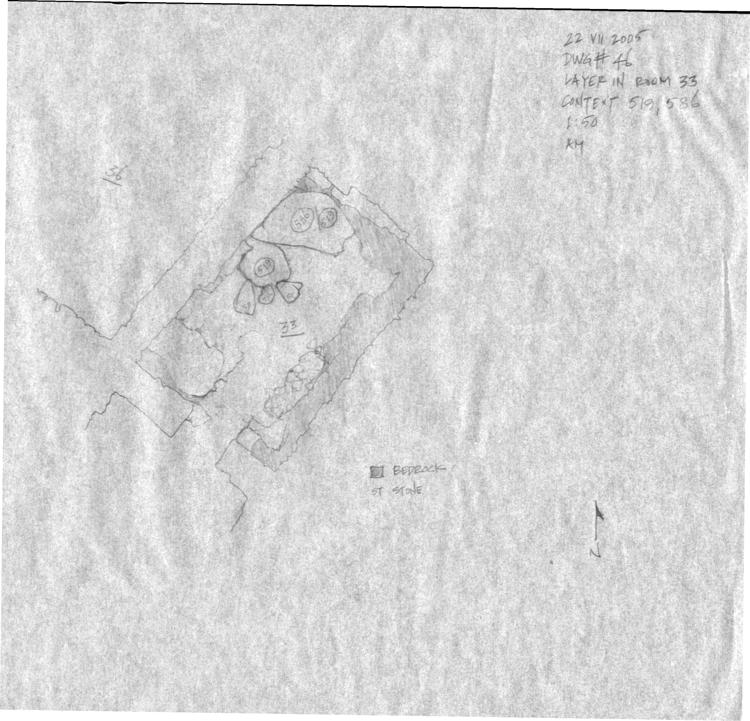 22 VII 2005
DWG# 46
LAYER IN ROOM 33
CONTEXT 519, 586
1:50
AM
36
33
BEDROCK
ST STONE
N